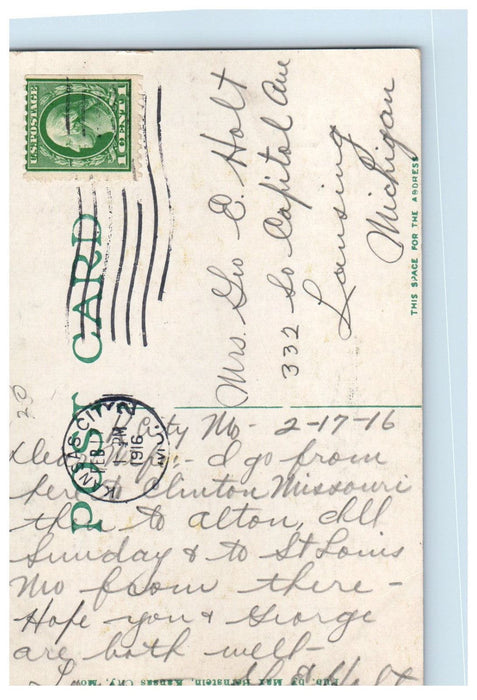 U.S. POSTAGE
1 CENT 1
POST CARD
KANSAS CITY
FEB
1 PM
1916
MO.
2
THIS SPACE FOR THE ADDRESS
Mrs. Geo E. Holt
332 So Capitol Ave
Lansing
Michigan
City Mo - 2-17-16
Dear - I go from
here to Clinton Missouri
then to Alton, Ill
Sunday & to St Louis
Mo from there -
Hope you & George
are both well -
Holt
Pub. by Max Bernstein, Kansas City, Mo.